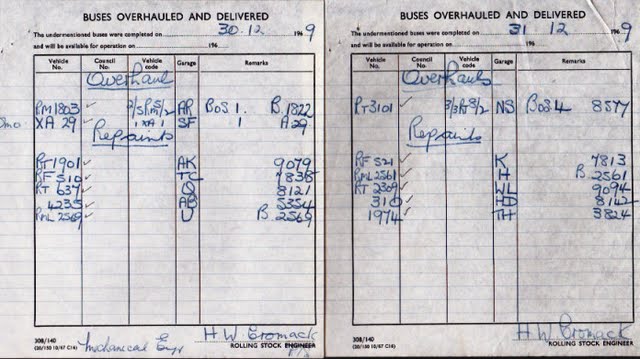 BUSES OVERHAULED AND DELIVERED
The undermentioned buses were completed on 30.12 1969
and will be available for operation on 196
Vehicle No. Council No. Vehicle code Garage Remarks
Overhauls
RM1803 ✓ AP BOS 1. B.1822
XA 29 ✓ 1 XA 1 SF 1 A29
Repaints
RT1901 ✓ AK 9079
RF 510 ✓ TC 7838
RT 637 ✓ Q 8121
4235 ✓ AB 5354
RML 2569 ✓ U B.2569
308/140
Mechanical Engr H.W. Cromack
ROLLING STOCK ENGINEER
BUSES OVERHAULED AND DELIVERED
The undermentioned buses were completed on 31 12 1969
and will be available for operation on 196
Vehicle No. Council No. Vehicle code Garage Remarks
Overhauls
RT3101 ✓ NS BOS 4 8577
Repaints
RF 521 ✓ K 7813
RML 2561 ✓ H B.2561
RT 2309 ✓ WL 9094
310 ✓ HD 8142
1974 ✓ TH 3824
308/140
H.W. Cromack
ROLLING STOCK ENGINEER